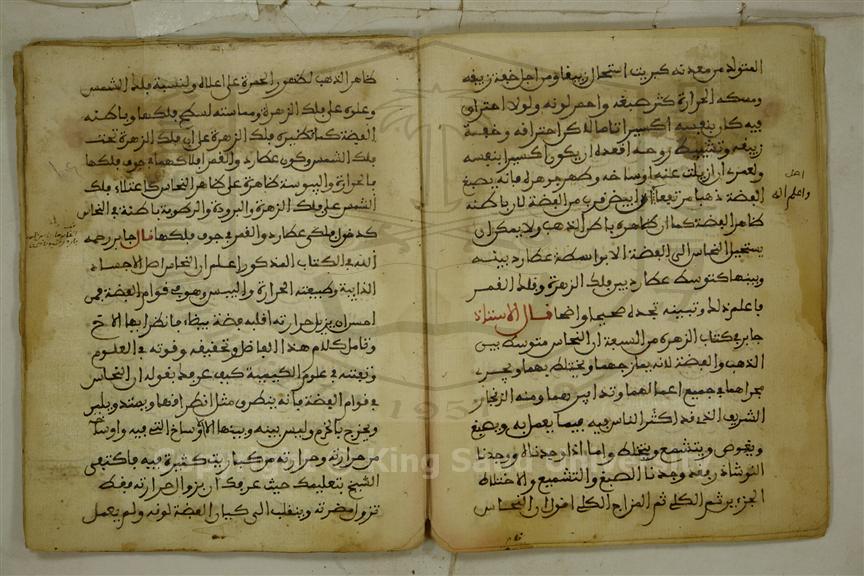 المتولد من معدنه كبريت استحال زيبقا ومن اجل خفة زيبقه
ومسكه الحرارة كثر صبغه واحمر لونه ولولا احتراق
فيه كان بنفسه اكسيرا تاما لاكن احتراقه وخفة
زيبقه وتشبيك روحه اقعده ان يكون اكسيرا بنفسه
ولعمري ان زيلت عنه اوساخه وطهر جوهره فانه يصبغ
الفضة ذهبا مرتفعا وابيض قريب من الفضة لان باطنه
ظاهر الفضة كما ان ظاهره باطن الذهب ولا يمكن ان
يستحيل النحاس الى الفضة الا بواسطة عطارد بينه
وبينها كتوسط عطارد بين فلك الزهرة وفلك القمر
فاعلم ذلك وتبينه تجده صحيحا واضحا قال الاستاذ
جابر في كتاب الزهرة من السبعة ان النحاس متوسط بين
الذهب والفضة لانه يمازجهما ويختلط بهما ويجري
مجراهما في جميع اعمالهما وتدابيرهما ومنه الزنجار
الشريف الذي قد اكثر الناس فيه فيما يعمل به ويصبغ
ويغوص ويتشمع ويختلط واما اذا وجدنا او وجدنا
النوشاذر فقد وجدنا الصبغ والتشميع والاختلاط
الجزءين ثم الكلي ثم المزاج الكلي اقول ان النحاس
واعلم انه
ظاهر الذهب لظهور الحمرة على اعلاه ولنسبة فلك الشمس
وعلوه على فلك الزهرة ومماسته لسطح فلكها وباطنه
الفضة كما تظهره فلك الزهرة على ان فلك الزهرة تحت
فلك الشمس وكون عطارد والقمر افلاكهما في جوف فلكها
فالحرارة واليبوسة ظاهرة على ظاهر النحاس كاعتلاء فلك
الشمس على فلك الزهرة والبرودة والرطوبة باطنة في النحاس
كدخول فلكي عطارد والقمر في جوف فلكها قال جابر رحمه
الله في الكتاب المذكور اعلم ان النحاس اصل الاجساد
الذايبة وطبيعته الحرارة واليبس وهو في قوام الفضة فمن
احسن ان يزيل حرارته اقلبه فضة بيضاء فانظر ايها الاخ
وتامل كلام هذا الفاضل وتحقيقه وقوته في العلوم
في علوم الكيمية كيف عرفك بقوله ان النحاس
في قوام الفضة فانه ينطرق مثل انطراقها ويمتد ويلين
ويخرج بالخرم وليس بينه وبينها الا الاوساخ التي فيه واوساخه
من حرارته وحرارته من كباريت كثيرة فيه فاكتفى
الشيخ بتعليمك حيث عرفك ان يزول حرارته فقط
تزول مضرته وينقلب الى كيان الفضة لونه ولم يعمل